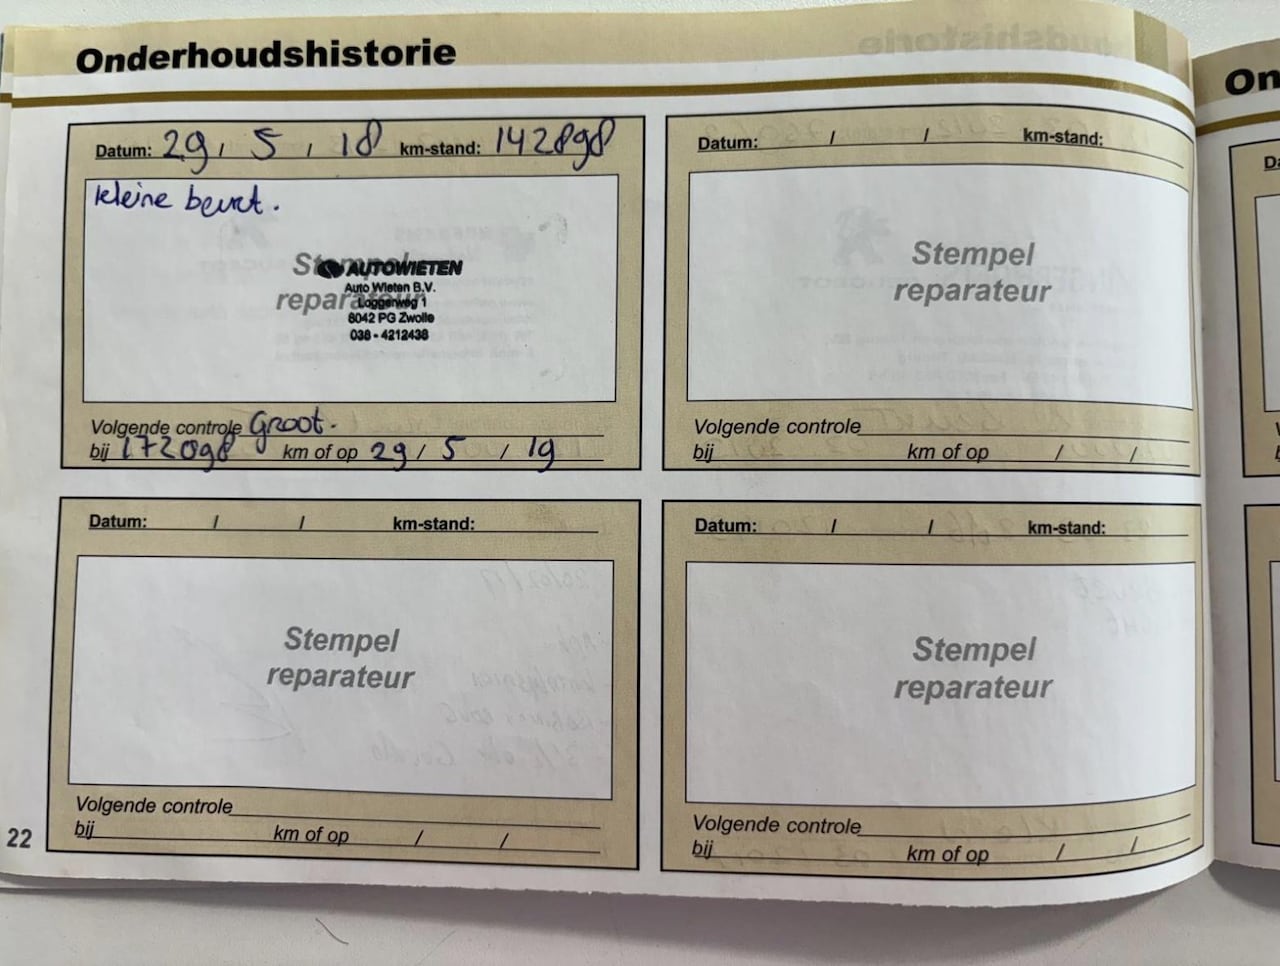 Onderhoudshistorie
Datum: 29 / 5 / 18 km-stand: 142898
kleine beurt.
Stempel
reparateur
AUTOWIETEN
Auto Wieten B.V.
Loggerweg 1
8042 PG Zwolle
038 - 4212438
Volgende controle Groot.
bij 172098 km of op 29 / 5 / 19
Datum: / / km-stand:
Stempel
reparateur
Volgende controle
bij km of op / /
Datum: / / km-stand:
Stempel
reparateur
Volgende controle
bij km of op / /
Datum: / / km-stand:
Stempel
reparateur
Volgende controle
bij km of op / /
22
On